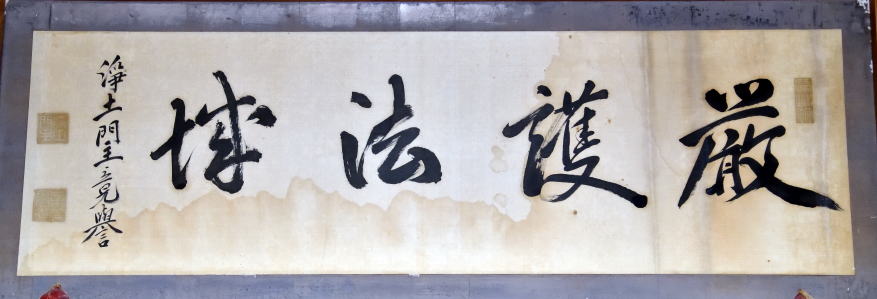 嚴護法城
淨土門主竟譽